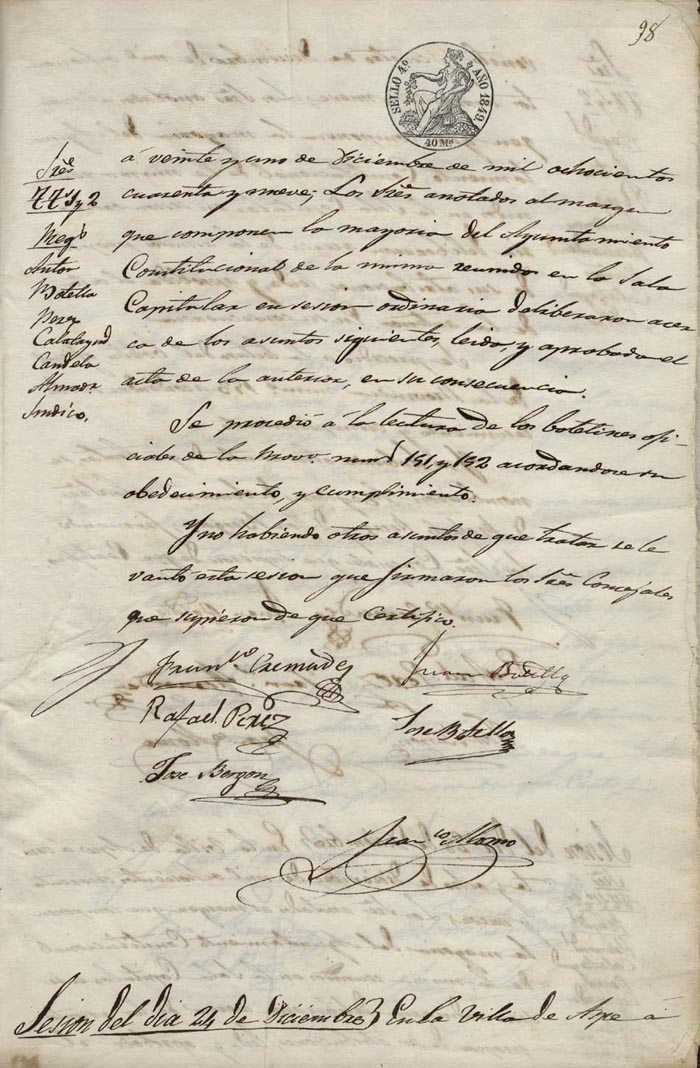 98
SELLO 4º AÑO 1849.
40 Ms.
Sres
ttes 1º y 2
Regs
Antor
Botella
Perez
Calatayud
Candela
Almodr
Sindico.
á veinte y uno de Diciembre de mil ochocientos
cuarenta y nueve; Los Sres anotados al margen
que componen la mayoria del Ayuntamiento
Constitucional de la misma reunido en la Sala
Capitular en sesion ordinaria deliberaron acer
ca de los asuntos siguientes, leida, y aprobada el
acta de la anterior, en su consecuencia.
Se procedió á la lectura de los boletines ofi-
ciales de la Prova. numd 151 y 152 acordandose su
obedecimiento, y cumplimiento.
Y no habiendo otros asuntos de que tratar se le
vanto esta sesion que firmaron los Sres Concejales
que supieron de que Certifico.
Franco Cremades
Juan Botella
Rafael Perez
Jose Botella
Jose Berzon
Franco
Sesion del dia 24 de Diciembre} En la Villa de Aspe á